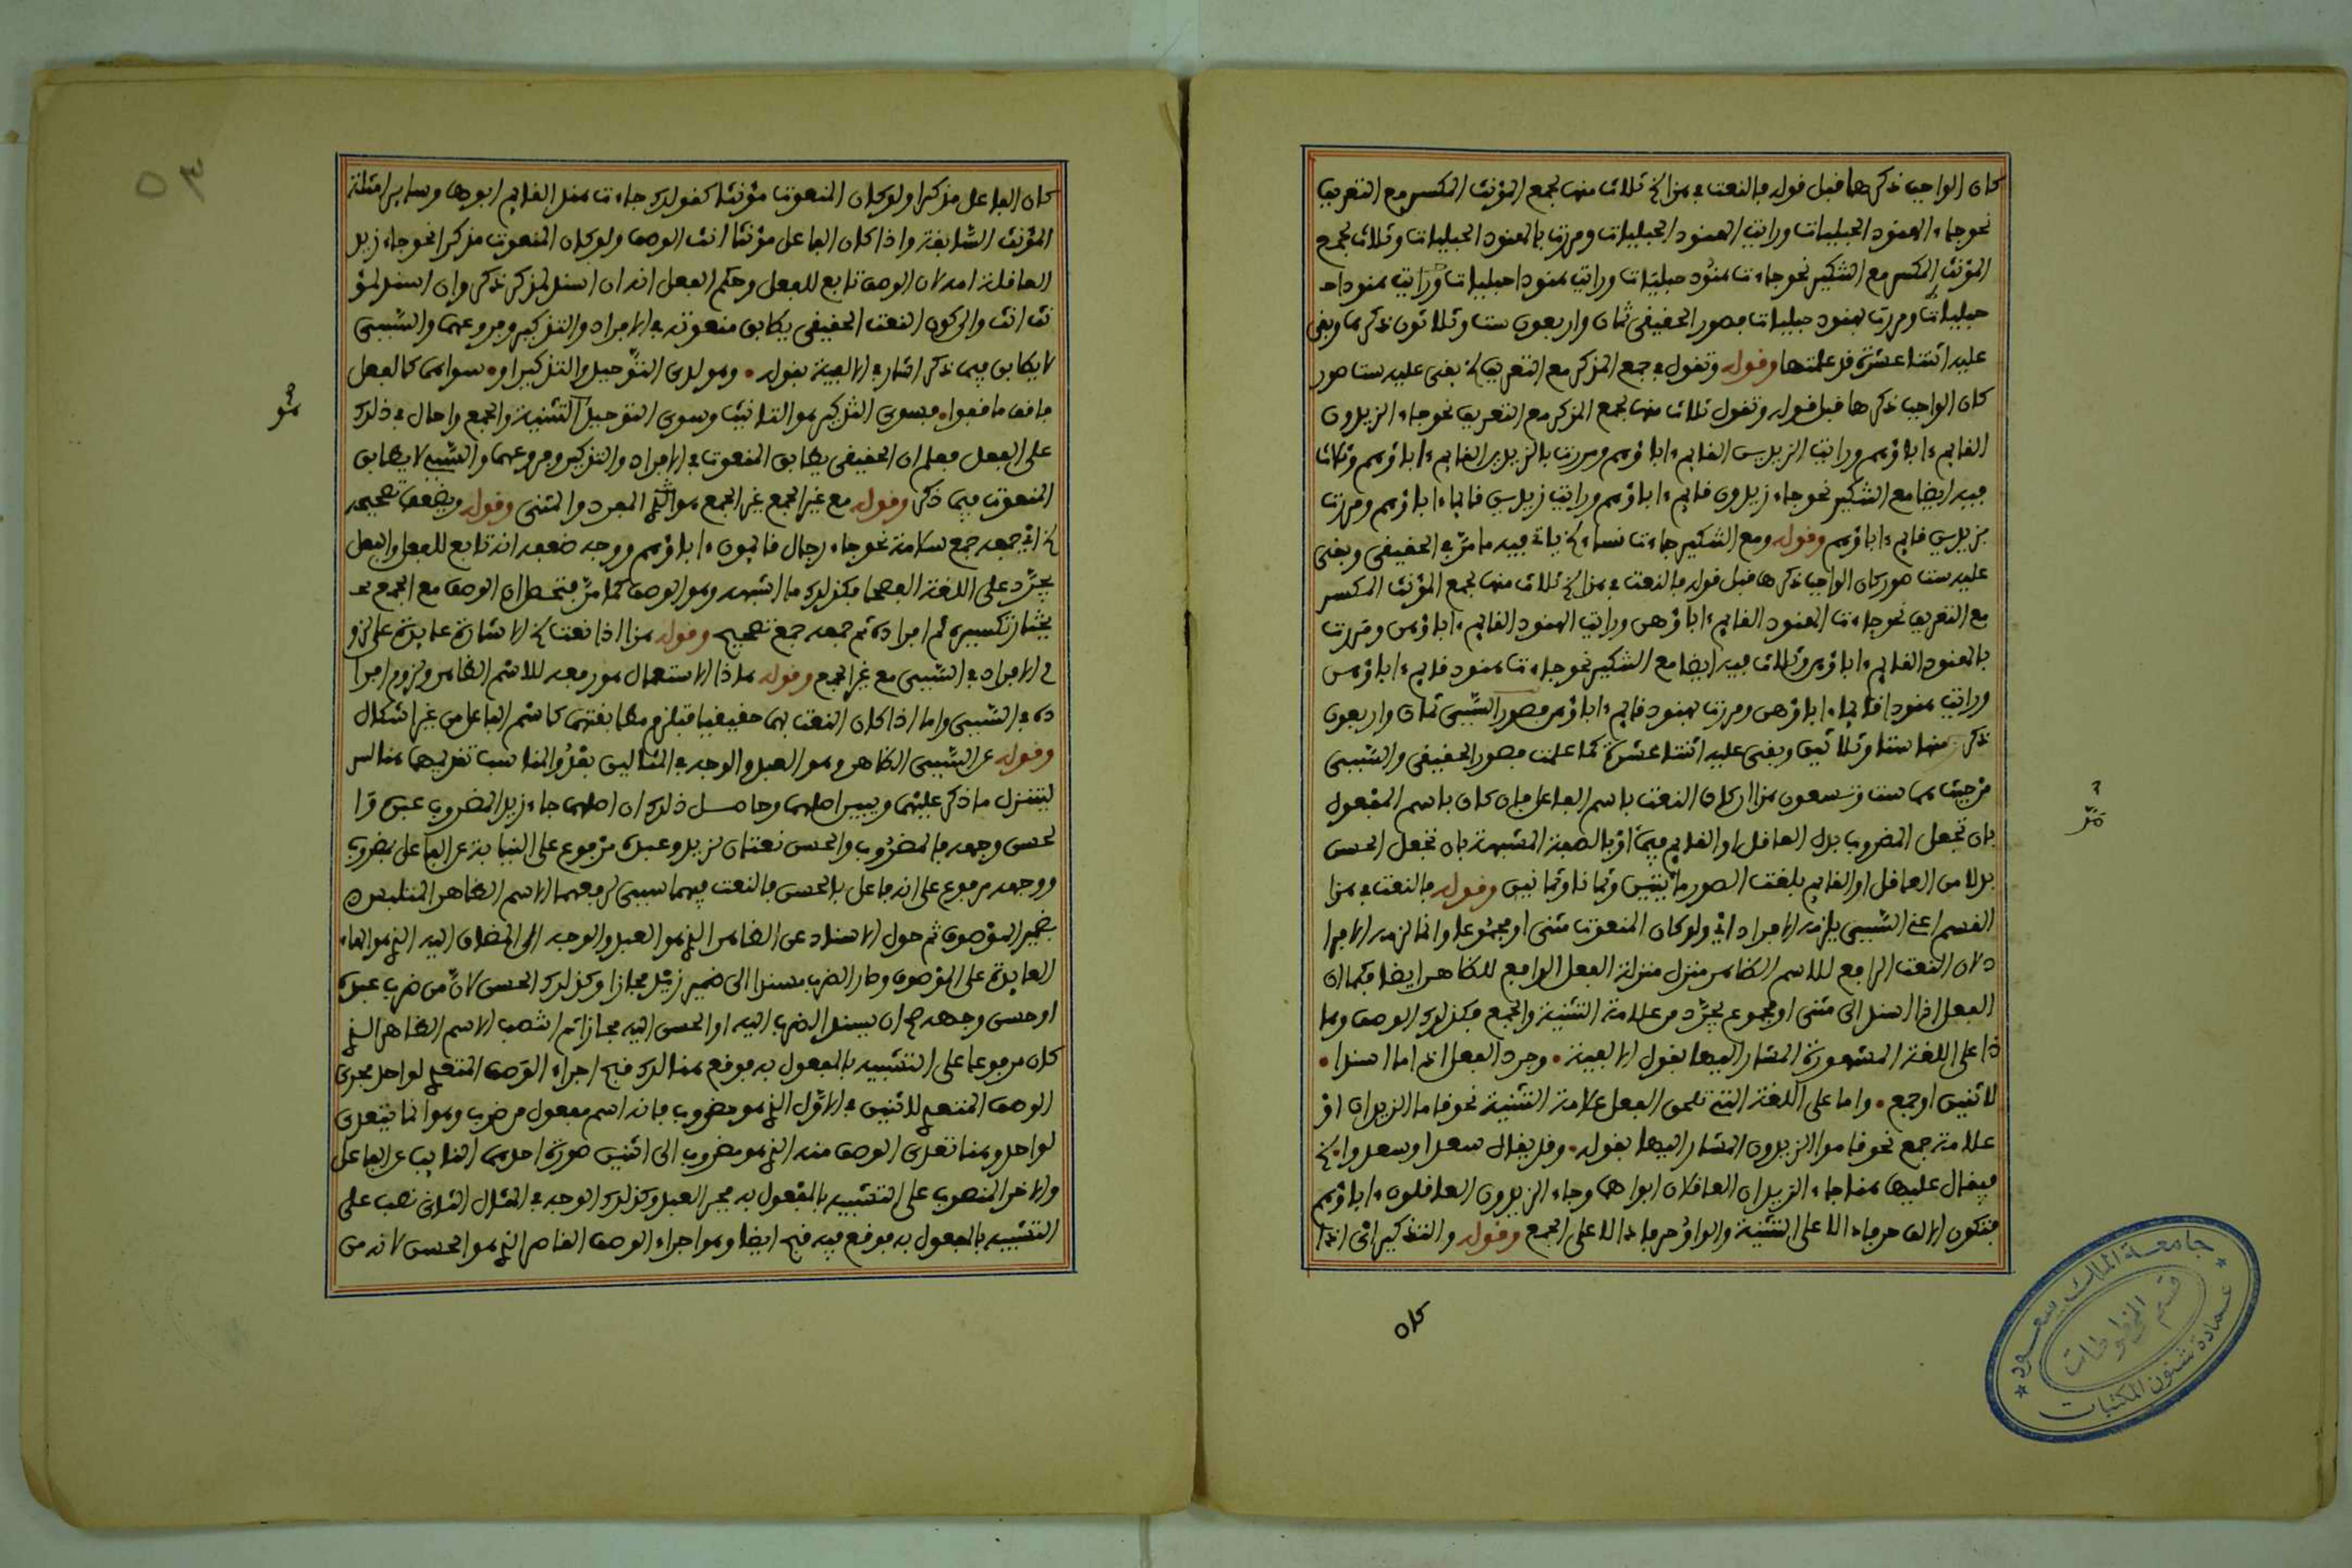 كان الواجب ذكرها قبل قوله فالنعت في هذا الخ ثلاث منها لجمع المؤنث المكسر مع التعريف
نحو جاء الهنود الحبليات ورأيت الهنود الحبليات ومررت بالهنود الحبليات وثلاث لجمع
المؤنث المكسر مع التنكير نحو جاءت هنود حبليات ورأيت هنودا حبليات
حبليات ومررت بهنود حبليات فصور الحقيقي ثمان واربعون ست وثلاثون ذكرها وبقي
عليه اثنتا عشرة قد علمتها وقوله وتقول في جمع المذكر مع التعريف الخ بقي عليه ست صور
كان الواجب ذكرها قبل قوله وتقول ثلاث منها لجمع المذكر مع التعريف نحو جاء الزيدون
القائم ءاباؤهم ورأيت الزيدين القائم ءاباؤهم ومررت بالزيدين القائم ءاباؤهم وثلاث
فيه ايضا مع التنكير نحو جاء زيدون قائم ءاباؤهم ورأيت زيدين قائما ءاباؤهم ومررت
بزيدين قائم ءاباؤهم وقوله ومع التنكير جاءت نساء الخ ياتي فيه ما مر في الحقيقي وبقي
عليه ست صور كان الواجب ذكرها قبل قوله فالنعت في هذا الخ ثلاث منها لجمع المؤنث المكسر
مع التعريف نحو جاءت الهنود القائم ءاباؤهن ورأيت الهنود القائم ءاباؤهن ومررت
بالهنود القائم ءاباؤهن وثلاث فيه ايضا مع التنكير نحو جاءت هنود قائم ءاباؤهن
ورأيت هنودا قائما ءاباؤهن ومررت بهنود قائم ءاباؤهن فصور السببي ثمان واربعون
ذكر منها ستا وثلاثين وبقي عليه اثنتا عشرة كما علمت فصور الحقيقي والسببي
من حيث هما ست وتسعون هذا ان كان النعت باسم الفاعل فان كان باسم المفعول
بان تجعل المضروب بدل العاقل او القائم فيهما او بالصفة المشبهة بان تجعل الحسن
بدلا من العاقل او القائم بلغت الصور مائتين وثمانا وثمانين وقوله فالنعت في هذا
القسم اعني السببي يلزمه الافراد اي ولو كان المنعوت مثنى او مجموعا وانما لزمه الافرا
د لان النعت الرافع للاسم الظاهر منزل منزلة الفعل الرافع للظاهر ايضا فكما ان
الفعل اذا اسند الى مثنى او مجموع يجرد من علامة التثنية والجمع فكذلك الوصف وها
ذا على اللغة المشهورة المشار اليها بقول الالفية • وجرد الفعل اذا ما اسندا •
لاثنين او جمع • واما على اللغة التي تلحق الفعل علامة التثنية نحو قاما الزيدان او
علامة جمع نحو قاموا الزيدون المشار اليها بقوله • وقد يقال سعدا وسعدوا الخ
فيقال عليها هنا جاء الزيدان العاقلان ابواهما وجاء الزيدون العاقلون ءاباؤهم
فتكون الالف حرفا دالا على التثنية والواو حرفا دالا على الجمع وقوله والتذكير اي اذا
كان
كان الفاعل مذكرا ولو كان المنعوت مؤنثا كقولك جاءت هند القائم ابوها وسائر امثلة
المؤنث السابقة واذا كان الفاعل مؤنثا انث الوصف ولو كان المنعوت مذكرا نحو جاء زيد
العاقلة امه لان الوصف تابع للفعل وحكم الفعل انه ان اسند لمذكر ذكر وان اسند لمؤ
نث انث والى كون النعت الحقيقي يطابق منعوته في الافراد والتذكير وفروعهما والسببي
لا يطابق فيما ذكر اشار في الالفية بقوله • وهو لدى التوحيد والتذكير او • سواهما كالفعل
فاقف ما قفوا • فسوى التذكير هو التانيث وسوى التوحيد التثنية والجمع واحال في ذلك
على الفعل فعلم ان الحقيقي يطابق المنعوت في الافراد والتذكير وفروعهما والسببي لا يطابق
المنعوت فيما ذكر وقوله مع غير الجمع غير الجمع هو الشيء المفرد والمثنى وقوله ويضعف تصحيحه
الخ اي جمعه جمع سلامة نحو جاء رجال قائمون ءاباؤهم ووجه ضعفه انه تابع للفعل والفعل
يجرد على اللغة الفصحى فكذلك ما اشبهه وهو الوصف كما مر فتحصل ان الوصف مع الجمع
يختار تكسيره ثم افراده ثم جمعه جمع تصحيح وقوله هذا اذا نعت الخ الاشارة عائدة على لزو
م الافراد في السببي مع غير الجمع وقوله هاذا الاستعمال هو رفعه للاسم الظاهر ولزوم افرا
ده في السببي واما اذا كان النعت بهما حقيقيا فتلزم مطابقتهما كاسم الفاعل من غير اشكال
وقوله عن السببي الظاهر وهو العبد والوجه في المثالين بعد والمناسب تقديمهما هنالك
ليتنزل ما ذكر عليهما ويبين اصلهما وحاصل ذلك ان اصلهما جاء زيد المضروب عبده وا
لحسن وجهه فالمضروب والحسن نعتان لزيد وعبده مرفوع على النيابة عن الفاعل بمضروب
ووجهه مرفوع على انه فاعل بالحسن فالنعت فيهما سببي لرفعهما الاسم الظاهر المتلبس
بضمير الموصوف ثم حول الاسناد عن الظاهر الذي هو العبد والوجه الى المضاف اليه الذي هو الهاء
العائدة على الموصوف وصار الضرب مسندا الى ضمير زيد مجازا وكذلك الحسن لان من ضرب عبده
او حسن وجهه صح ان يسند الضرب اليه او الحسن اليه مجازا ثم انتصب الاسم الظاهر الذي
كان مرفوعا على التشبيه بالمفعول به فوقع هنالك قبح اجراء الوصف المتعدي لواحد مجرى
الوصف المتعدي لاثنين في الاول الذي هو مضروب فانه اسم مفعول من ضرب وهو انما يتعدى
لواحد وهنا تعدى الوصف منه الذي هو مضروب الى اثنين صورة احدهما النائب عن الفاعل
والاخر المنصوب على التشبيه بالمفعول به فجر العبد وكذلك الوجه في المثال الثاني نصب على
التشبيه بالمفعول به فوقع فيه قبح ايضا وهو اجراء الوصف القاصر الذي هو الحسن لانه من
٥٣
جامعة الملك سعود
قسم المخطوطات
عمادة شئون المكتبات